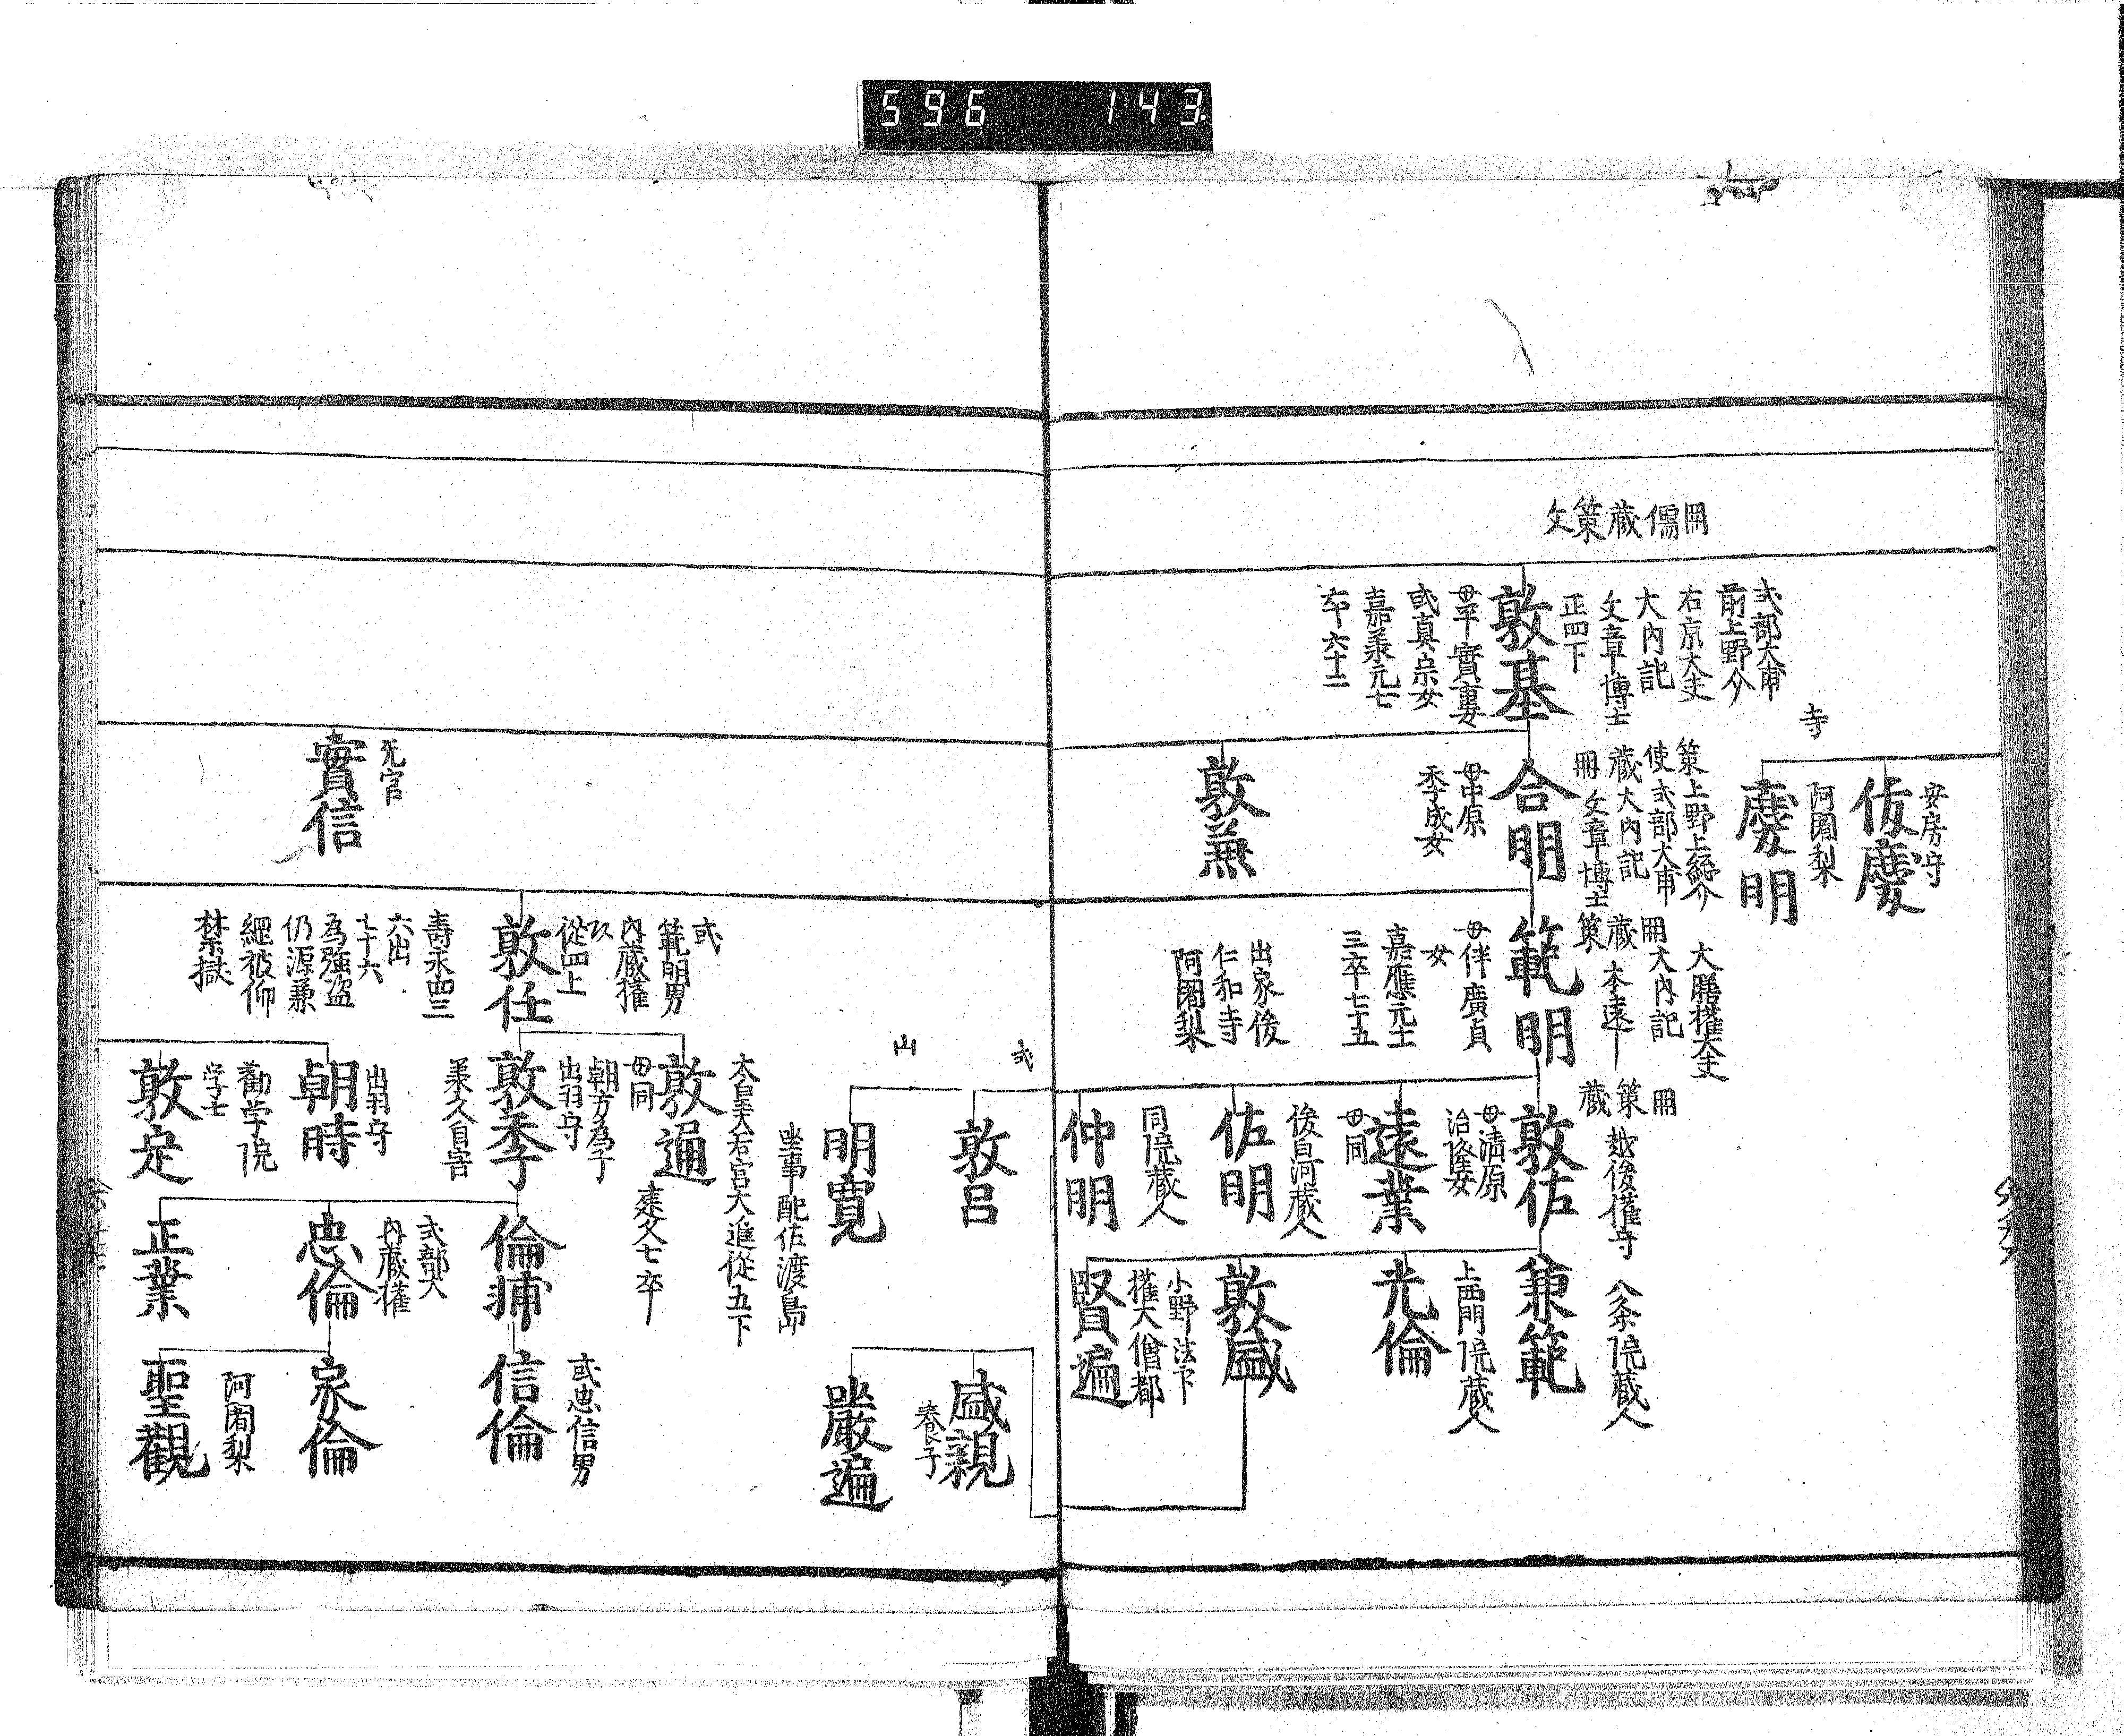 596 143
冊儒蔵策文
式部大甫
前上野介
右京大夫
大内記
文章博士
正四下
敦基
母平實重女
或真宗女
嘉承元七
卒六十二
寺
安房守
佐慶
阿闍梨
慶明
策上野上総介
使式部大甫
蔵大内記
冊文章博士
合明
母中原
季成女
敦兼
大膳權大夫
冊大内記
蔵本遠
策
範明
母伴廣貞
女
嘉應元士
三卒七十五
出家後
仁和寺
阿闍梨
冊策蔵
越後權守
敦佐
母清原
治隆女
遠業
母同
後白河蔵人
佐明
同院蔵人
仲明
八条院蔵人
兼範
上西門院蔵人
光倫
敦盛
小野法下
權大僧都
賢遍
式
敦呂
山
明寛
坐事配佐渡島
盛親
養子
嚴遍
无官
實信
或
範明男
内蔵權
從四上
敦任
壽永四三
六出
七十六
為強盗
仍源兼
綱被仰
禁獄
太皇太后宮大進從五下
敦通
母同
建久七卒
朝方為子
出羽守
敦季
承久自害
出羽守
朝時
勸学院
学士
敦定
倫輔
式部大
内蔵權
忠倫
正業
或忠信男
信倫
家倫
阿闍梨
聖觀